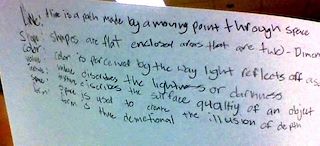 Line: line is a path made by a moving point through space
shapes are flat enclosed areas that are two-Dimen
color: color is perceived by the way light reflects off a su
value: value describes the lightness or darkness
describes the surface quality of an object
space: space is used to create the illusion of depth
form: form is three demetional